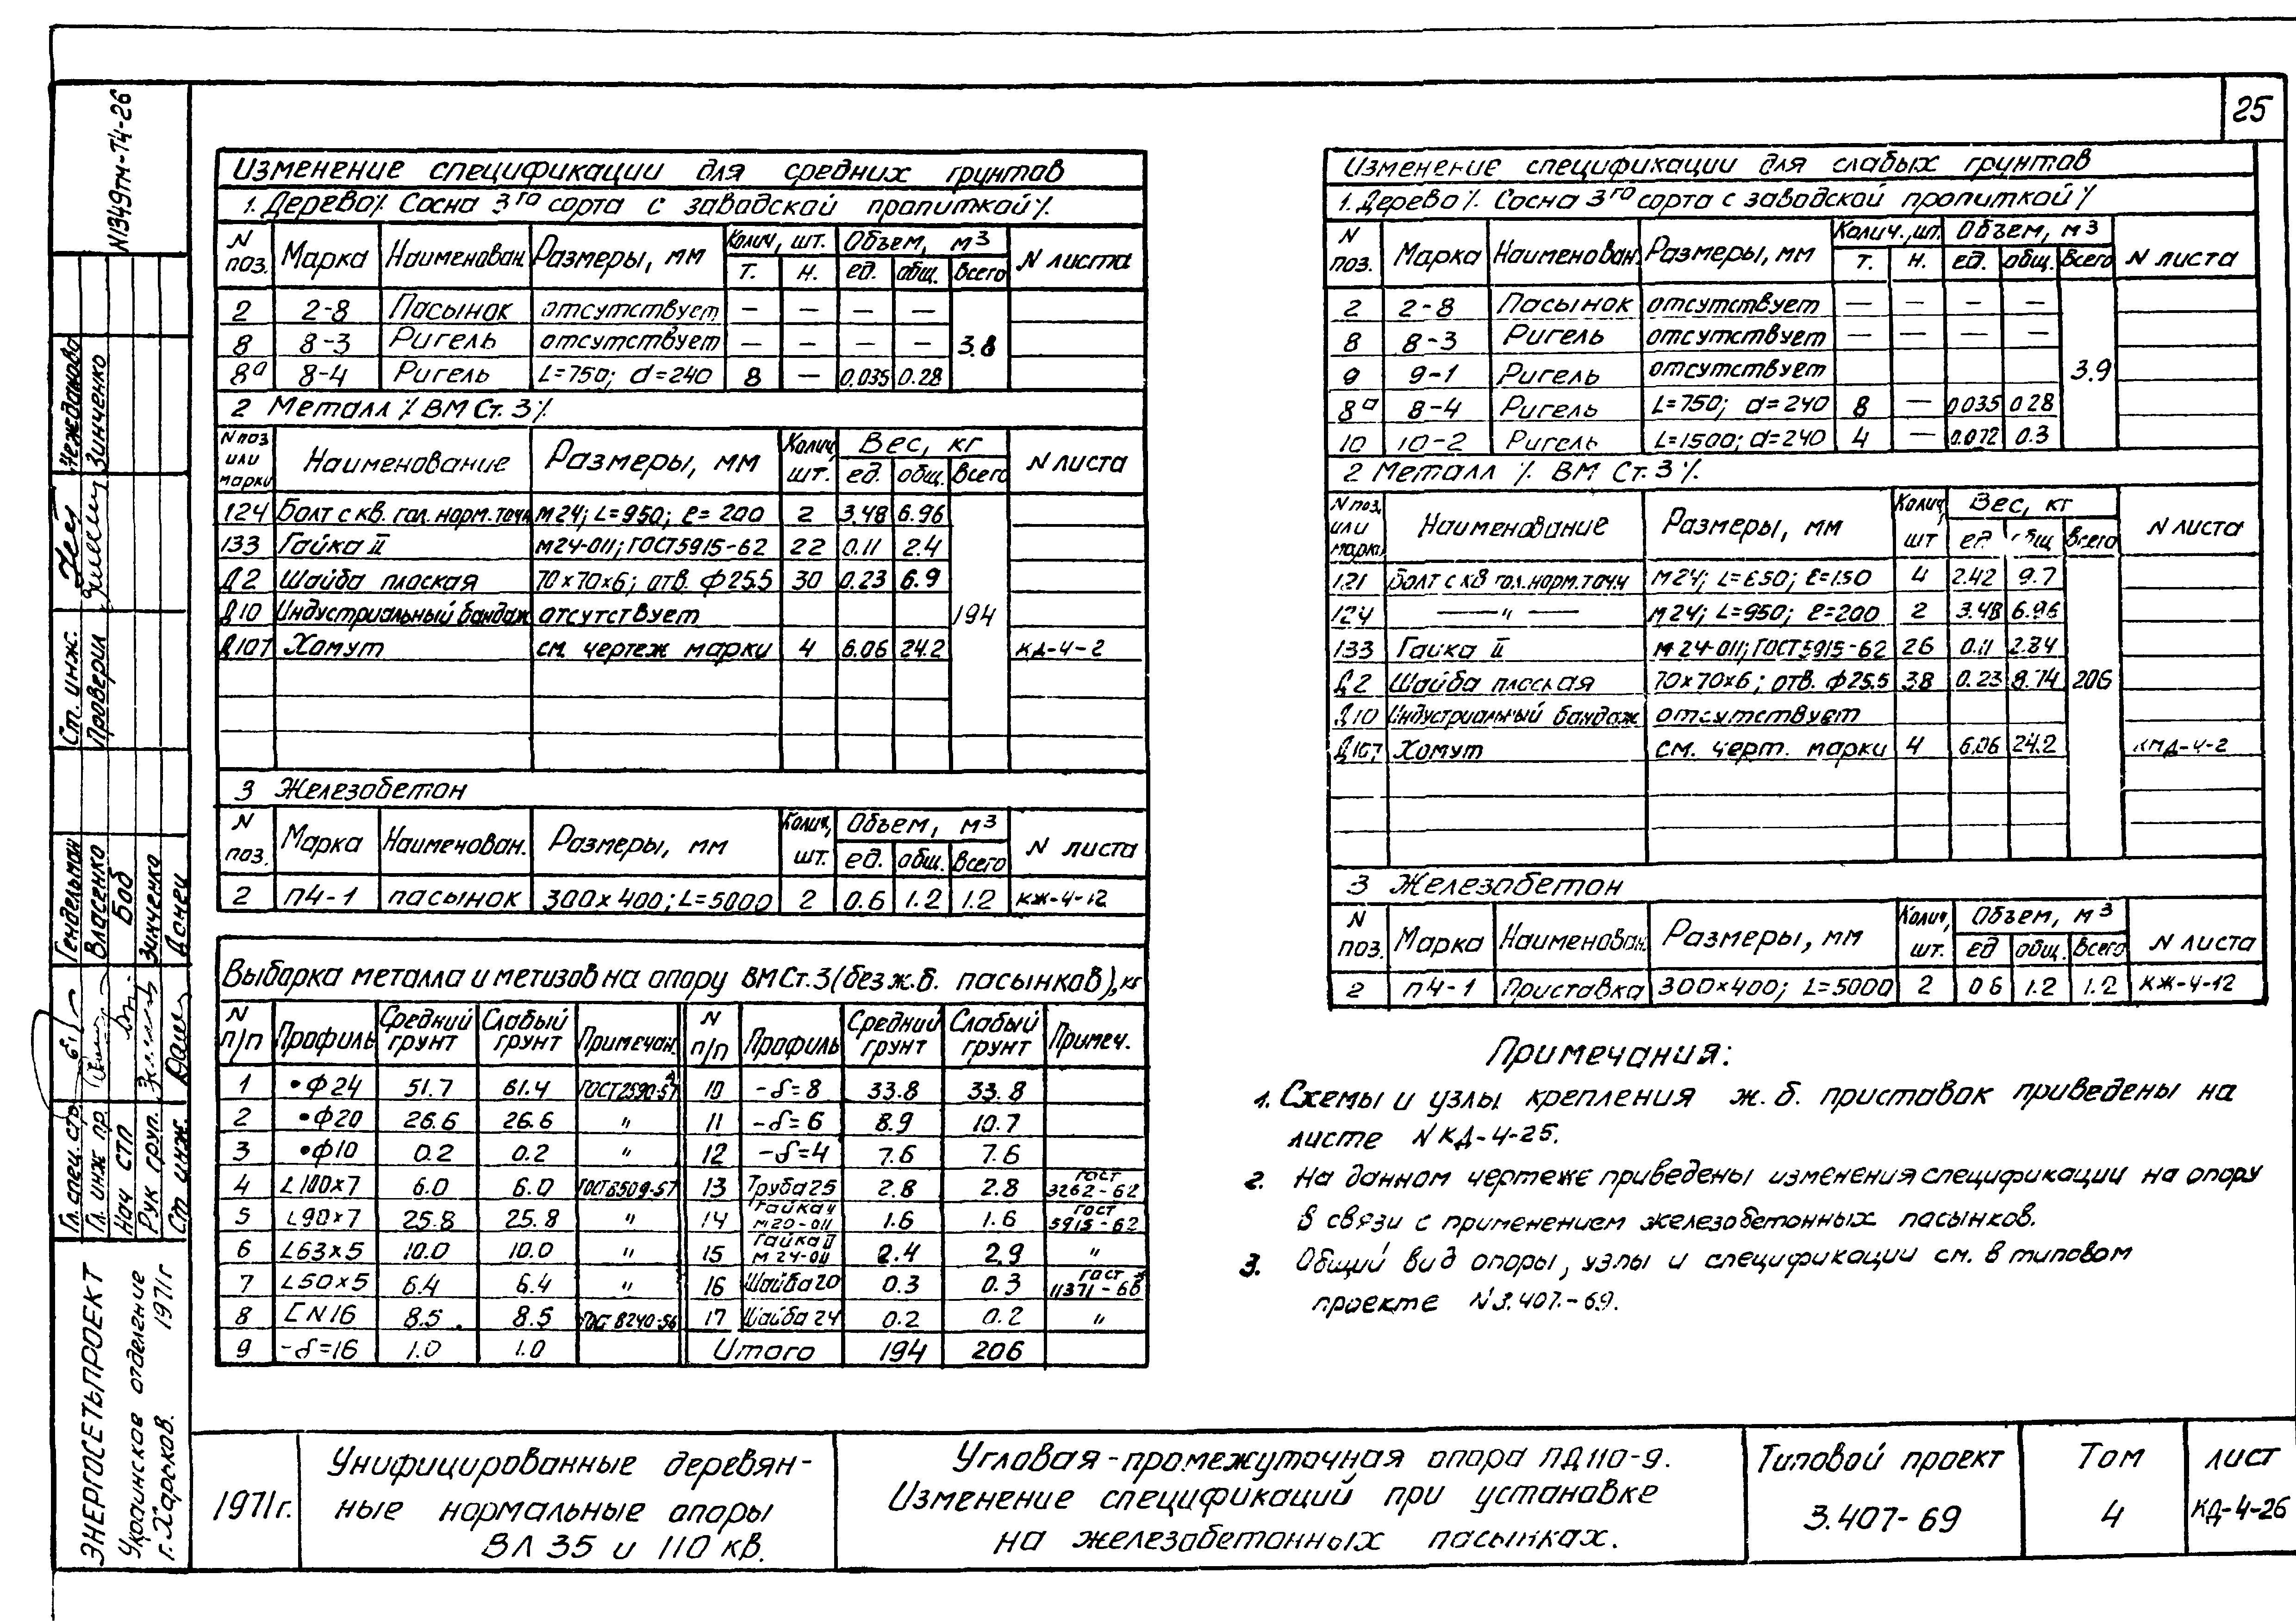 25
N1349тм-Т4-26
Изменение спецификации для средних грунтов
1. Дерево ⁒ Сосна 3го сорта с заводской пропиткой ⁒
N поз. Марка Наименован. Размеры, мм Колич, шт. Объем, м3 N листа
т. н. ед. общ. Всего
2 2-8 Пасынок отсутствует — — — —
8 8-3 Ригель отсутствует — — — — 3.8
8а 8-4 Ригель L=750; d=240 8 — 0.035 0.28
2 Металл ⁒ ВМ Ст. 3 ⁒
N поз или марки Наименование Размеры, мм Колич, шт. Вес, кг N листа
ед. общ. Всего
124 Болт с кв. гол. норм. точн М24; L=950; ℓ=200 2 3.48 6.96
133 Гайка II М24-011; ГОСТ 5915-62 22 0.11 2.4
Д2 Шайба плоская 70×70×6; отв. ф25.5 30 0.23 6.9
Д10 Индустриальный бандаж отсутствует 194
Д107 Хомут см. чертеж марки 4 6.06 24.2 КД-4-2
3 Железобетон
N поз. Марка Наименован. Размеры, мм Колич, шт. Объем, м3 N листа
ед. общ. Всего
2 П4-1 пасынок 300×400; L=5000 2 0.6 1.2 1.2 КЖ-4-12
Выборка металла и метизов на опору ВМ Ст. 3 (без ж.б. пасынков), кг
N п/п Профиль Средний грунт Слабый грунт Примечан. N п/п Профиль Средний грунт Слабый грунт Примеч.
1 •ф24 51.7 61.4 ГОСТ 2590-57 10 -δ=8 33.8 33.8
2 •ф20 26.6 26.6 " 11 -δ=6 8.9 10.7
3 •ф10 0.2 0.2 " 12 -δ=4 7.6 7.6
4 L100×7 6.0 6.0 ГОСТ 8509-57 13 Труба 25 2.8 2.8 ГОСТ 3262-62
5 L90×7 25.8 25.8 " 14 Гайка II М20-011 1.6 1.6 ГОСТ 5915-62
6 L63×5 10.0 10.0 " 15 Гайка II М24-011 2.4 2.9 "
7 L50×5 6.4 6.4 " 16 Шайба 20 0.3 0.3 ГОСТ 11371-68
8 [N16 8.5 8.5 ГОСТ 8240-56 17 Шайба 24 0.2 0.2 "
9 -δ=16 1.0 1.0 Итого 194 206
Изменение спецификации для слабых грунтов
1. Дерево ⁒ Сосна 3го сорта с заводской пропиткой ⁒
N поз. Марка Наименован. Размеры, мм Колич., шт. Объем, м3 N листа
т. н. ед. общ. Всего
2 2-8 Пасынок отсутствует — — — —
8 8-3 Ригель отсутствует — — — —
9 9-1 Ригель отсутствует 3.9
8а 8-4 Ригель L=750; d=240 8 — 0.035 0.28
10 10-2 Ригель L=1500; d=240 4 — 0.072 0.3
2 Металл ⁒ ВМ Ст. 3 ⁒
N поз. или марки Наименование Размеры, мм Колич, шт Вес, кг N листа
ед. общ Всего
121 Болт с кв гол. норм. точн М24; L=650; ℓ=150 4 2.42 9.7
124 — " — М24; L=950; ℓ=200 2 3.48 6.96
133 Гайка II М24-011; ГОСТ 5915-62 26 0.11 2.84
Д2 Шайба плоская 70×70×6; отв. ф25.5 38 0.23 8.74 206
Д10 Индустриальный бандаж отсутствует
Д107 Хомут см. черт. марки 4 6.06 24.2 КМД-4-2
3 Железобетон
N поз. Марка Наименован. Размеры, мм Колич, шт. Объем, м3 N листа
ед общ. Всего
2 П4-1 Приставка 300×400; L=5000 2 0.6 1.2 1.2 КЖ-4-12
Примечания:
1. Схемы и узлы крепления ж.б. приставок приведены на
листе N КД-4-25.
2. На данном чертеже приведены изменения спецификации на опору
в связи с применением железобетонных пасынков.
3. Общий вид опоры, узлы и спецификации см. в типовом
проекте N 3.407.-69.
Ст. инж. Нежданова
Проверил Зинченко
Гл. спец. стр. Гендельман
Гл. инж пр Власенко
Нач СТП Боб
Рук груп. Зинченко
Ст. инж. Донец
ЭНЕРГОСЕТЬПРОЕКТ
Украинское отделение
г. Харьков. 1971г
1971г.
Унифицированные деревян-
ные нормальные опоры
ВЛ 35 и 110 кв.
Угловая-промежуточная опора ПД110-9.
Изменение спецификаций при установке
на железобетонных пасынках.
Типовой проект
3.407-69
Том
4
лист
КД-4-26